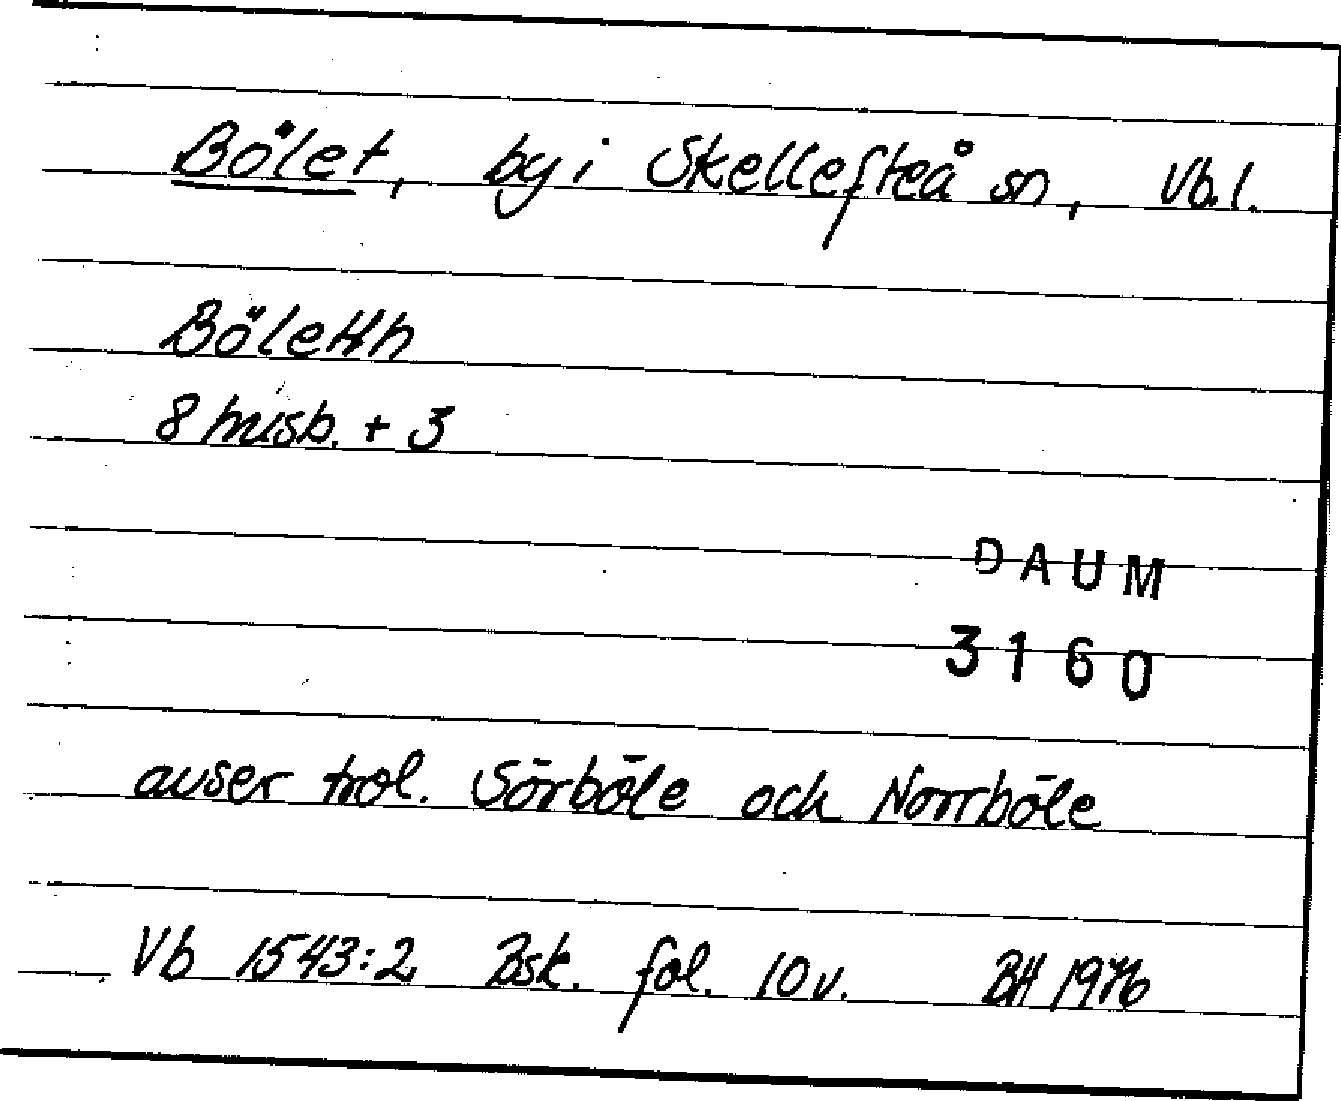 Bölet, by i Skellefteå sn, Vb.l.
Böletth
8 misb. + 3
DAUM
3160
avser trol. Sörböle och Norrböle
Vb 1543:2 Bsk. fol. 10 v. BH 1976